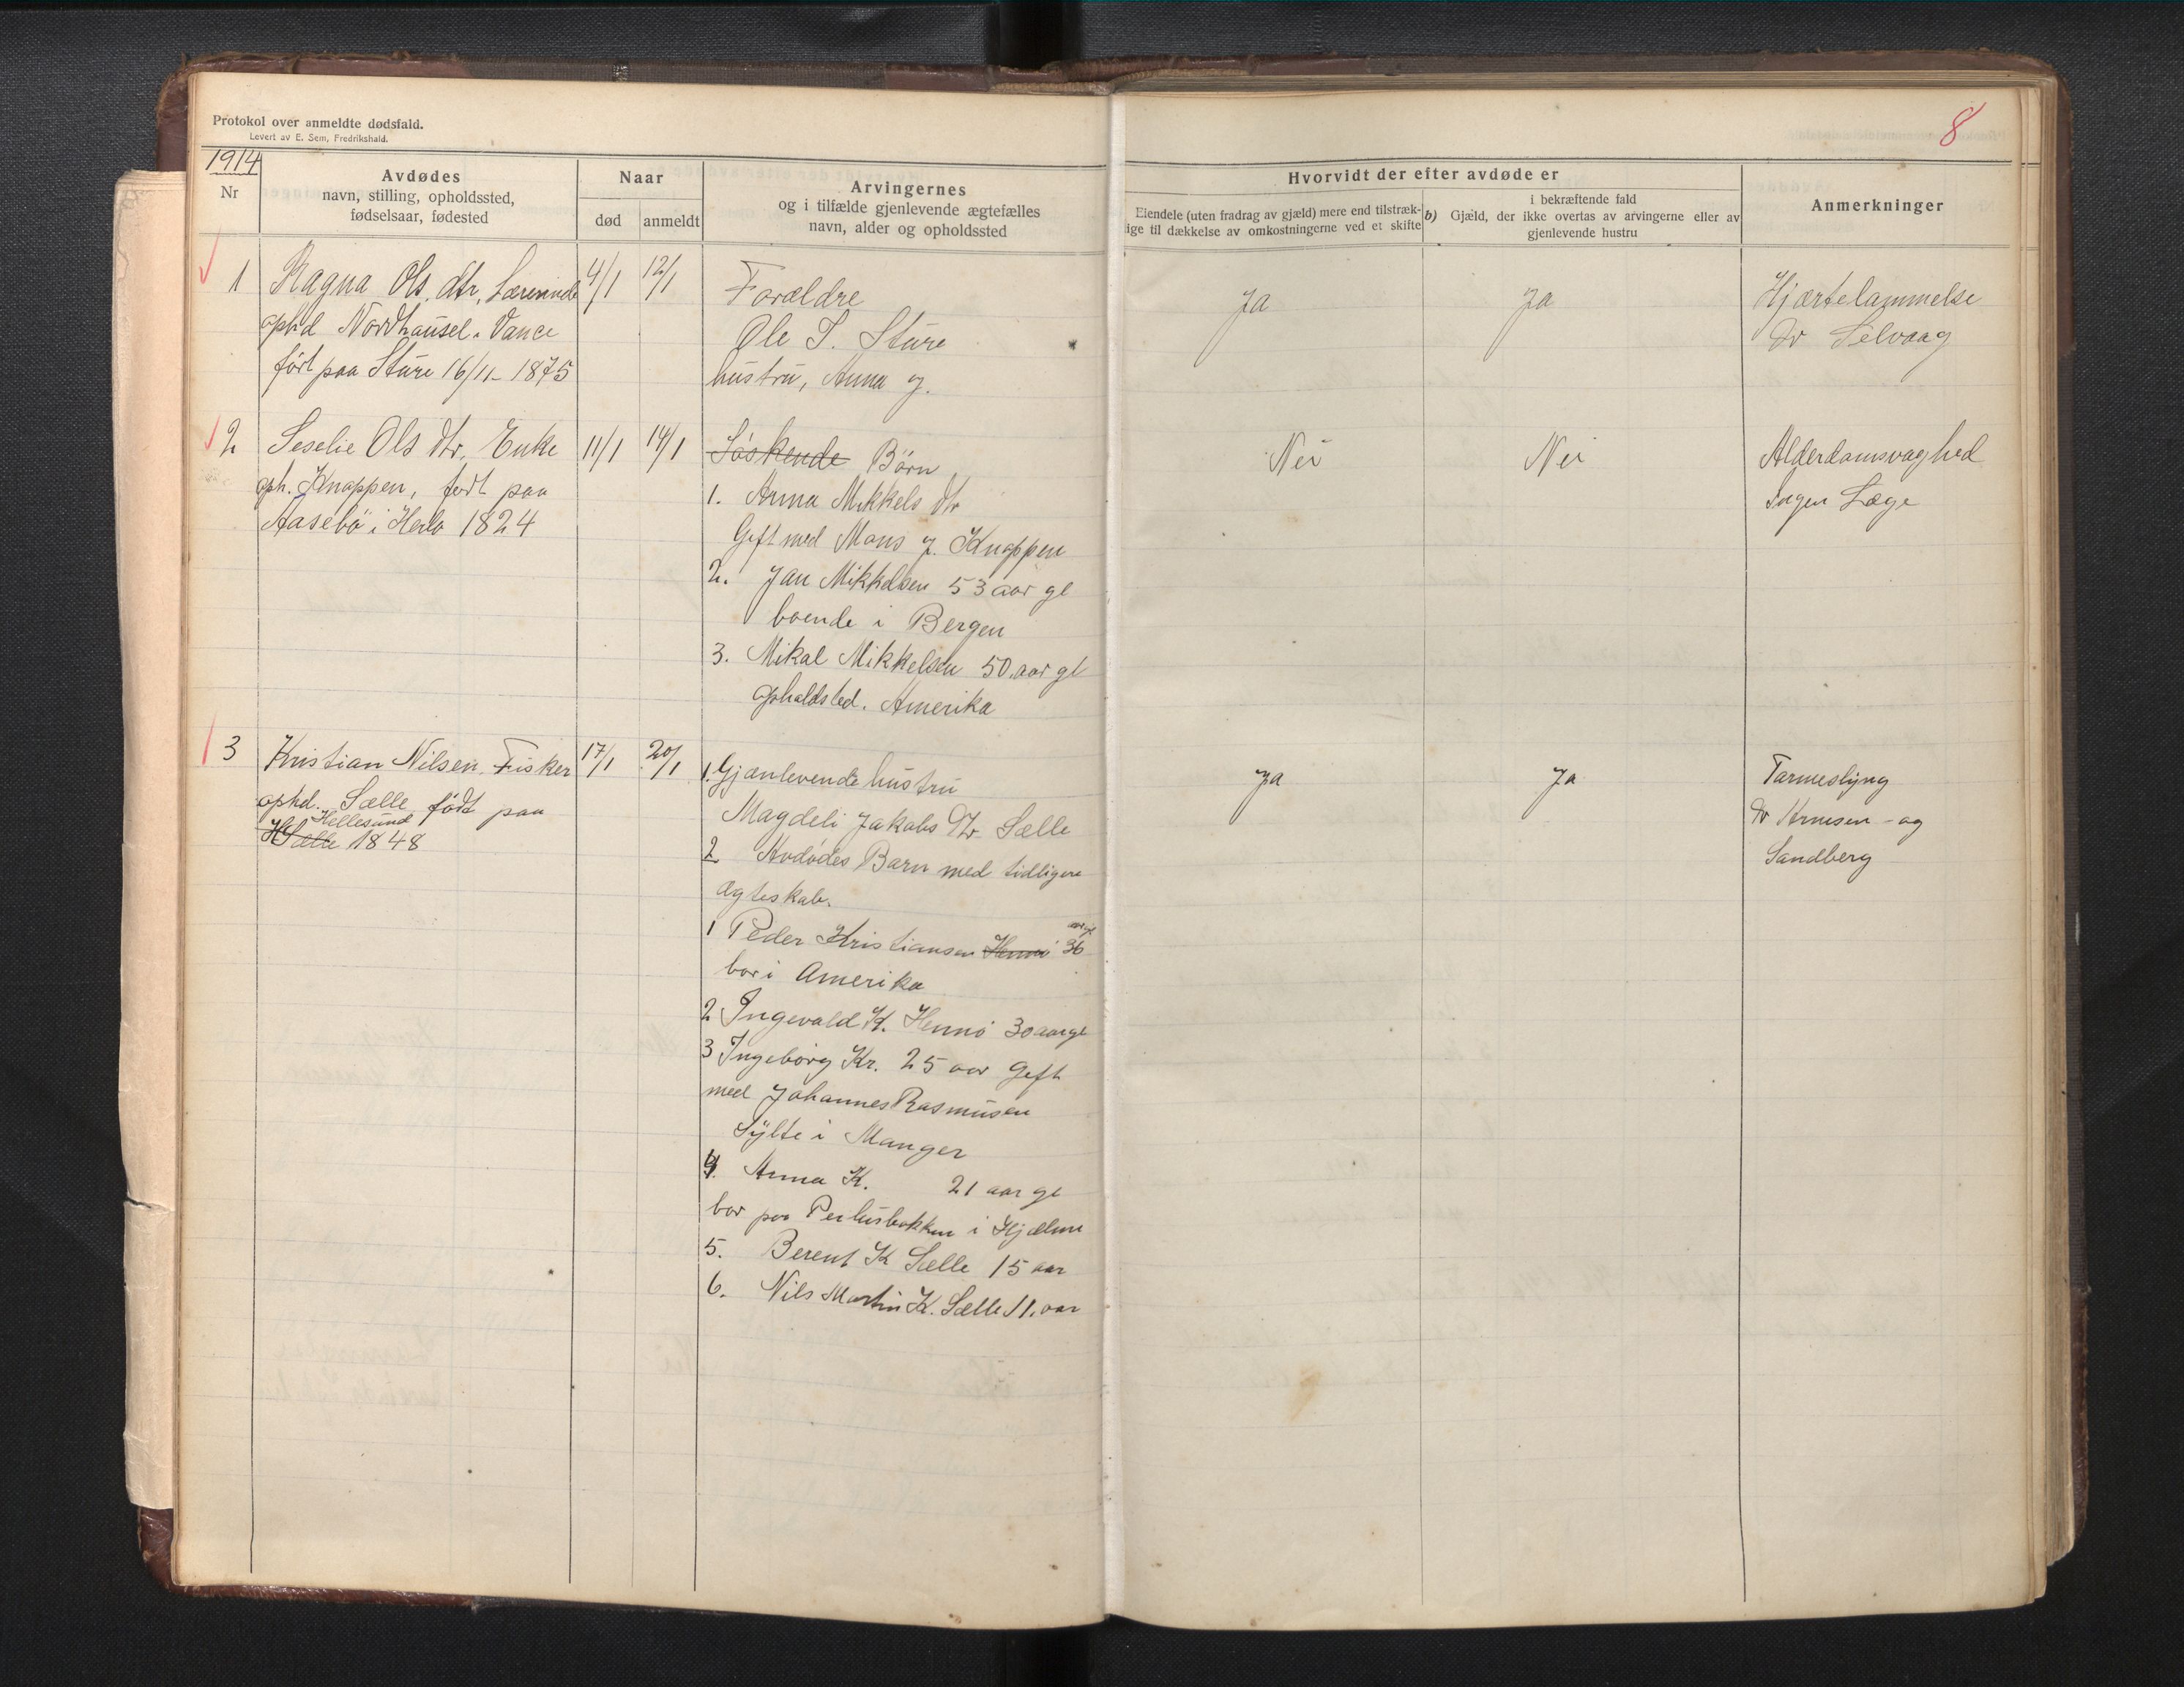 Protokol over anmeldte dødsfald.
Levert av E. Sem, Fredrikshald.
8
1914
Nr
Avdødes
navn, stilling, opholdssted,
fødselsaar, fødested
Naar
død
anmeldt
Arvingernes
og i tilfælde gjenlevende ægtefælles
navn, alder og opholdssted
Hvorvidt der efter avdøde er
Eiendele (uten fradrag av gjæld) mere end tilstræk-
lige til dækkelse av omkostningerne ved et skifte
b)
i bekræftende fald
Gjæld, der ikke overtas av arvingerne eller av
gjenlevende hustru
Anmerkninger
1
Ragna Ols. dtr, Lærerinde
ophd Nordhaüsel. Vance
født paa Stüre 16/11-1875
4/1
12/1
Forældre
Ole S. Stüre
hüstrü, Anna J.
Ja
Ja
Hjærtelammelse
Dr Selvaag
2
Seselie Ols dtr. Enke
oph. Knappen, født paa
Aasebø i Herlø 1824
11/1
14/1
Søskende Børn
1. Anna Mikkels dtr
Gift med Mons J. Knappen
2. Jan Mikkelsen 53 aar gl
boende i Bergen
3. Mikal Mikkelsen 50. aar gl
Opholdsted. Amerika
Nei
Nei
Alderdomsvaghed
Ingen Læge
3
Kristian Nilsen, Fisker
ophd. Sælle født paa
Hellesünd
Sælle 1848
17/1
20/1
1. Gjænlevende hüstrü
Magdeli Jakobs Dtr Sælle
2 Avdødes Barn med tidligere
Ægteskab.
1 Peder Kristiansen Hennø 36
aar gl
bor i Amerika
2 Ingevald K. Hennø 30 aar gl
3 Ingeborg Kr. 25 aar Gift
med Johannes Rasmüsen
Sÿlte i Manger
4. Anna K. 21 aar gl
bor paa i Hjælme
5. Berent K Sælle 15 aar
6. Nils Martin K. Sælle 11. aar
Ja
Ja
Tarmeslyng
Dr Arnesen - og
Sandberg